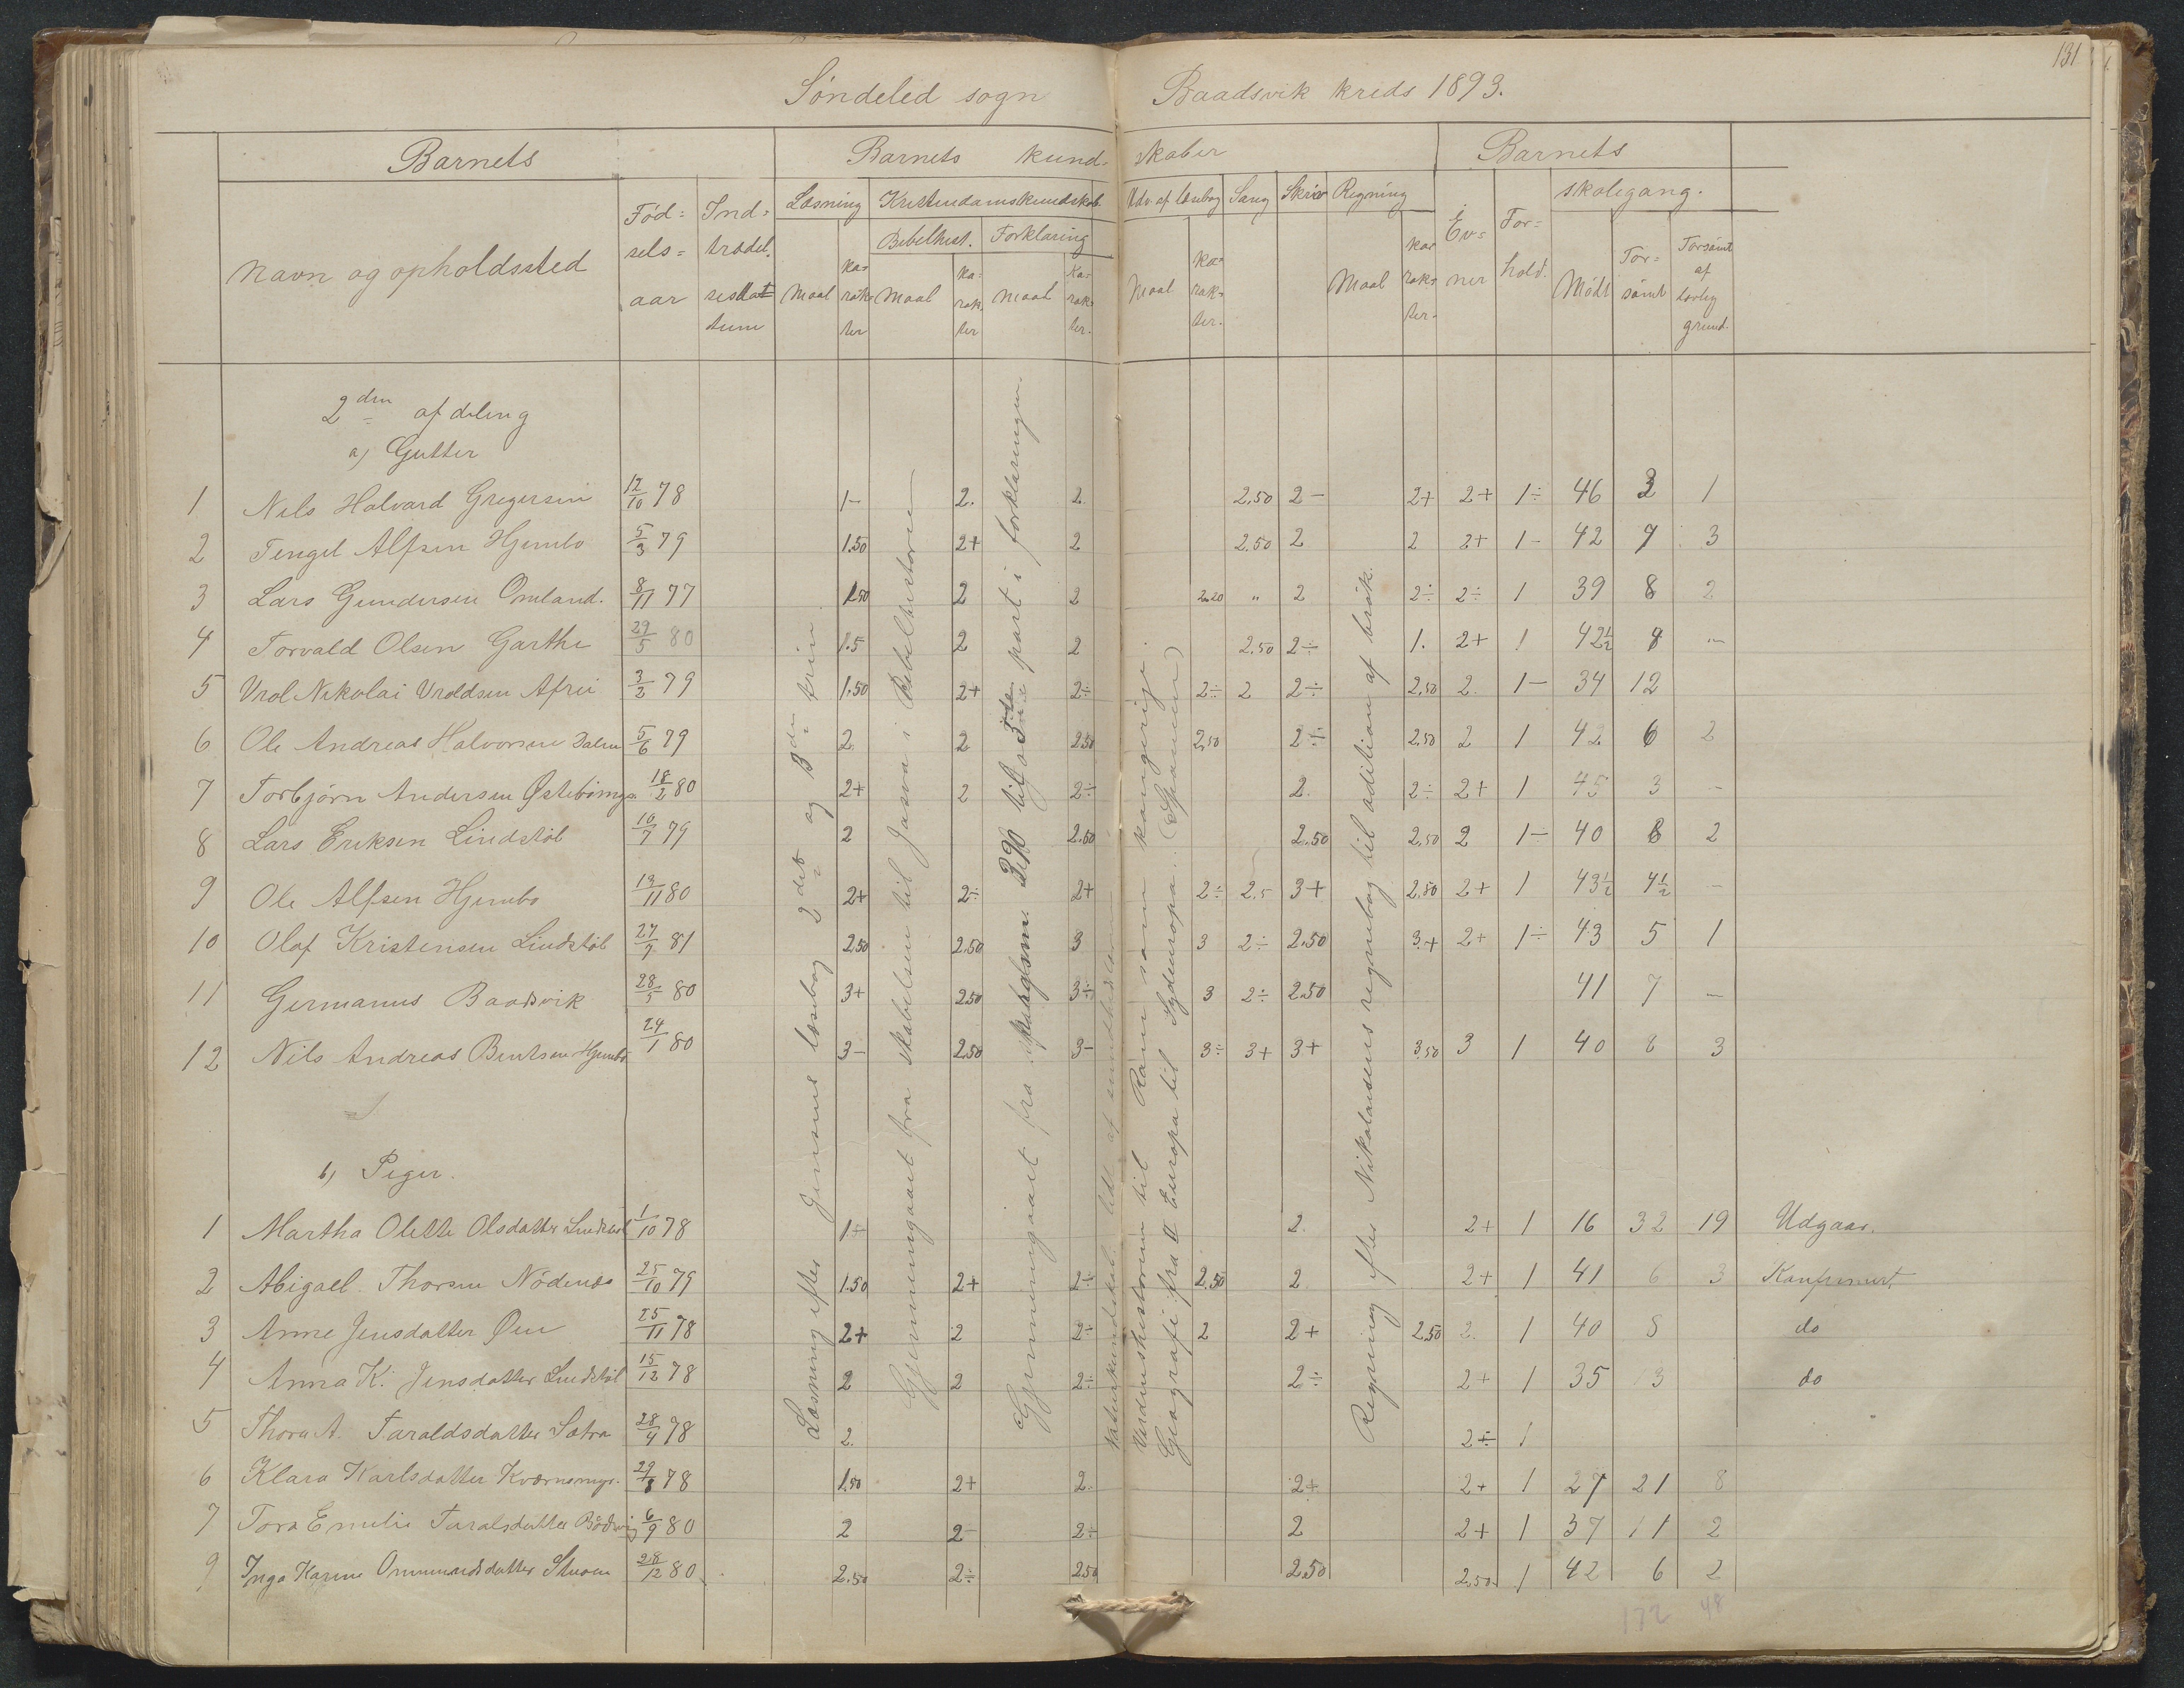 131
Søndeled sogn Baadsvik kreds 1893.
Barnets Barnets kund- skaber Barnets
Navn og opholdssted Fød- sels- aar Ind- trædel- sesdat tum Læsning Kristendomskundskab Udv. af læsebog Sang Skriv Regning Ev- ner For- hold. skolegang.
Bibelhist. Forklaring
Maal ka- rak- ter Maal ka- rak- ter Maal Ka- rak- ter. Maal Ka- rak- ter. Maal Kar rak- ter. Mødt For- sømt Forsømt af lovlig grund.
2den afdeling
a) Gutter
1 Nils Halvard Gregersen 12/10 78 1- 2. 2. 2.50 2- 2+ 2+ 1÷ 46 3 1
2 Tengel Alfsen Hjembo 5/3 79 1.50 2+ 2 2.50 2 2 2+ 1- 42 7 3
3 Lars Gundersen Omland. 8/11 77 1.50 2 2 2.20 " 2 2÷ 2÷ 1 39 8 2
4 Torvald Olsen Garthe 29/5 80 1.5 2 2 2.50 2÷ 1. 2+ 1 42½ 8 -
5 Vrol Nikolai Vroldsen Afrei 3/3 79 1.50 2+ 2÷ 2÷ 2 2÷ 2.50 2. 1- 34 12
6 Ole Andreas Halvorsen Dalen 5/6 79 2. 2 2.50 2.50 2÷ 2.50 2 1 42 6 2
7 Torbjørn Andersen Østebømyr. 18/2 80 2+ 2 2÷ 2. 2÷ 2+ 1 45 3 -
8 Lars Eriksen Lindstøl 16/7 79 2 2.50 2.50 2.50 2 1- 40 8 2
9 Ole Alfsen Hjembo 13/11 80 2+ 2÷ 2+ 2÷ 2.5 3+ 2.50 2+ 1 43½ 4½ -
10 Olaf Kristensen Lindstøl 27/7 81 2.50 2.50 3 3 2÷ 2.50 3+ 2+ 1÷ 43 5 1
11 Germanus Baadsvik 28/5 80 3+ 2.50 3÷ 3 2÷ 2.50 41 7 -
12 Nils Andreas Bentsen Hjembo 24/1 80 3- 2.50 3- 3÷ 3+ 3+ 3.50 3 1 40 8 3
b) Piger.
1 Martha Olette Olsdatter Lindstøl 1/10 78 1÷ 2. 2+ 1 16 32 19 Udgaar.
2 Abigael Thorsen Nødenes 25/10 79 1.50 2+ 2÷ 2.50 2 2+ 1 41 6 3 Konfirmert.
3 Anne Jensdatter Øen 25/11 78 2+ 2 2÷ 2 2+ 2.50 2. 1 40 8 do
4 Anna K. Jensdatter Lindstøl 15/12 78 2 2 2÷ 2÷ 2+ 1 35 13 do
5 Thora A. Taraldsdatter Sætra 28/4 78 2. 2÷ 1
6 Klara Karlsdatter Kværnsmyr. 29/8 78 1.50 2+ 2. 2+ 2+ 1 27 21 8
7 Tora Emelie Taralsdatter Bødvig 6/9 80 2 2- 2÷ 2 2+ 1 37 11 2
9 Inga Karine Ommundsdatter Stuoen 28/12 80 2.50 2÷ 2.50 2.50 2.50 1 42 6 2
172 48
Læsning efter Jensens læsebog 2det og 3die trin
Gjennemgaaet fra skabelsen til Jasva i Bibelhistorie
Gjennemgaaet fra 390 til 5te part i forklaringen.
Naturkundskab. lidt af sundhedslæren
Verdenshistorien til Rom som kongerige.
Geografi fra II Europa til Sydeuropa. (Spanien)
Regning efter Nikolaisens regnebog til adition af brøk.